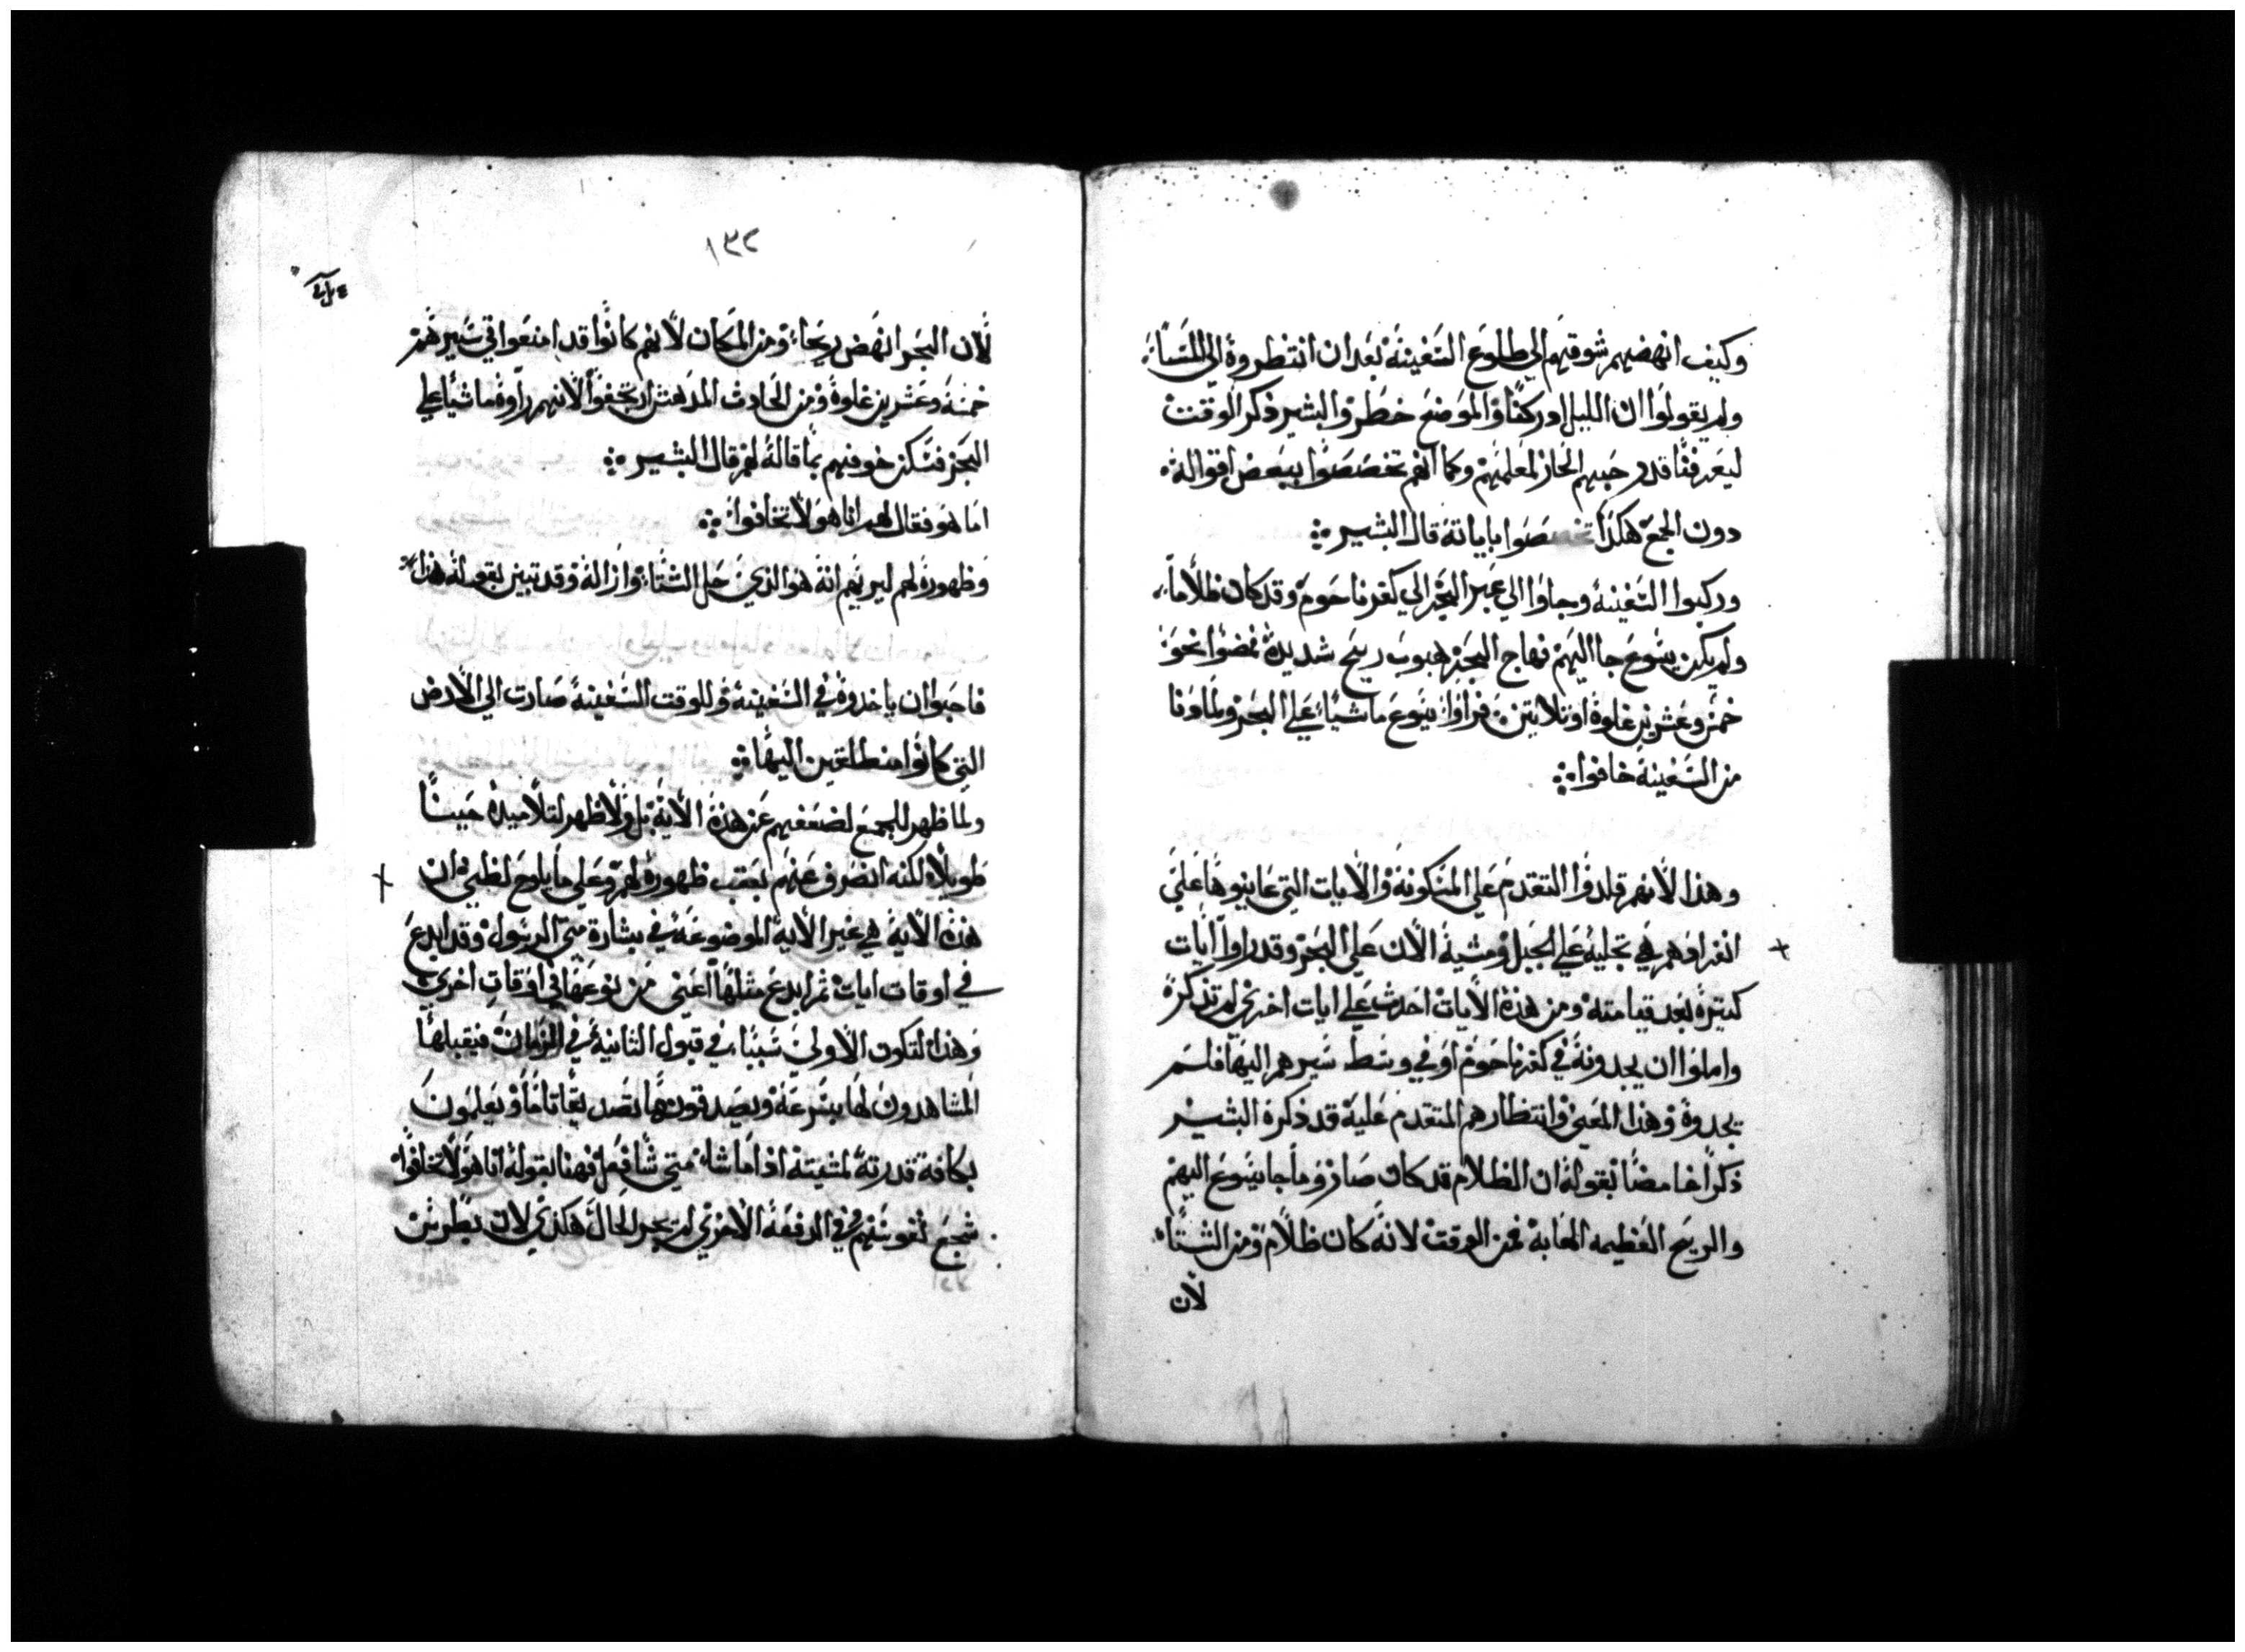 وكيف انهضهم شوقهم الي طلوع السفينة بعد ان انتظروة الي المساء
ولم يقولوا ان الليل ادركنا والموضع خطر والبشير ذكر الوقت
ليعرفنا قدر حبهم الحار لمعلمهم وكما انهم تخصصوا ببعض اقواله
دون الجمع هكذا تخصصوا باياتة قال البشير
وركبوا السفينة وجاوا الي عبر البحر الي كفرناحوم وقد كان ظلاماً
ولم يكن يسوع جا اليهم فهاج البحر لهبوب ريح شديدة فمضوا نحو
خمس وعشرين غلوة او تلاتين فراوا يسوع ماشياً علي البحر ولما دنا
من السفينة خافوا
وهذا لانهم قلدوا التقدم علي المسكونة والايات التي عاينوها علي
انفرادهم هي تجليه علي الجبل ومشية الان علي البحر وقد راوا ايات
كتيرة بعد قيامته ومن هذة الايات احدث علي ايات اخري لم تذكر
واملوا ان يجدونة في كفرناحوم او في وسط سيرهم اليها فلم
يجدوة وهذا المعني وانتظارهم المتقدم علية قد ذكرة البشير
ذكراً غامضاً بقولة ان الظلام قد كان صار وما جا يسوع اليهم
والريح العظيمه الهابة فمن الوقت لانه كان ظلام ومن الشتاء
لان
١٣٢
لان البحر انهض ريحاً ومن المكان لانهم كانوا قد امنعوا في سيرهم
خمسة وعشرين غلوة ومن الحادث المدهش ارتجفوا لانهم راوة ماشياً علي
البحر فسكن خوفهم بما قالة لهم قال البشير
اما هو فقال لهم انا هو لا تخافوا
وظهورة لهم ليريهم انة هو الذي حل الشتاء وازالة وقد تبين بقوله هذا
فاحبوا ان ياخدوة في السفينة وللوقت السفينة صارت الي الارض
التي كانوا منطلقين اليها
ولما ظهر للجمع لضعفهم عن هذة الاية بل ولا ظهر لتلاميدة حيناً
طويلاً لكنه انصرف عنهم بعقب ظهورة لهم وعلي ما يلوح لظني ان
هذة الاية هي غير الاية الموضوعة في بشارة متي الرسول وقد ابدع
في اوقات ايات ثم ابدع مثلها اعني من نوعها في اوقات اخري
وهذا لتكون الاولي سبباً في قبول الثانية في الزمان فيقبلها
المشاهدون لها بسرعة ويصدقون بها تصديقاً تاماً ويعلمون
بكافة قدرتة لمشيته اذا ما شاء متي شا فعل فهنا بقوله انا هو لا تخافوا
شجع نفوسهم وفي الدفعة الاخري لم يجر الحال هكذي لان بطرس